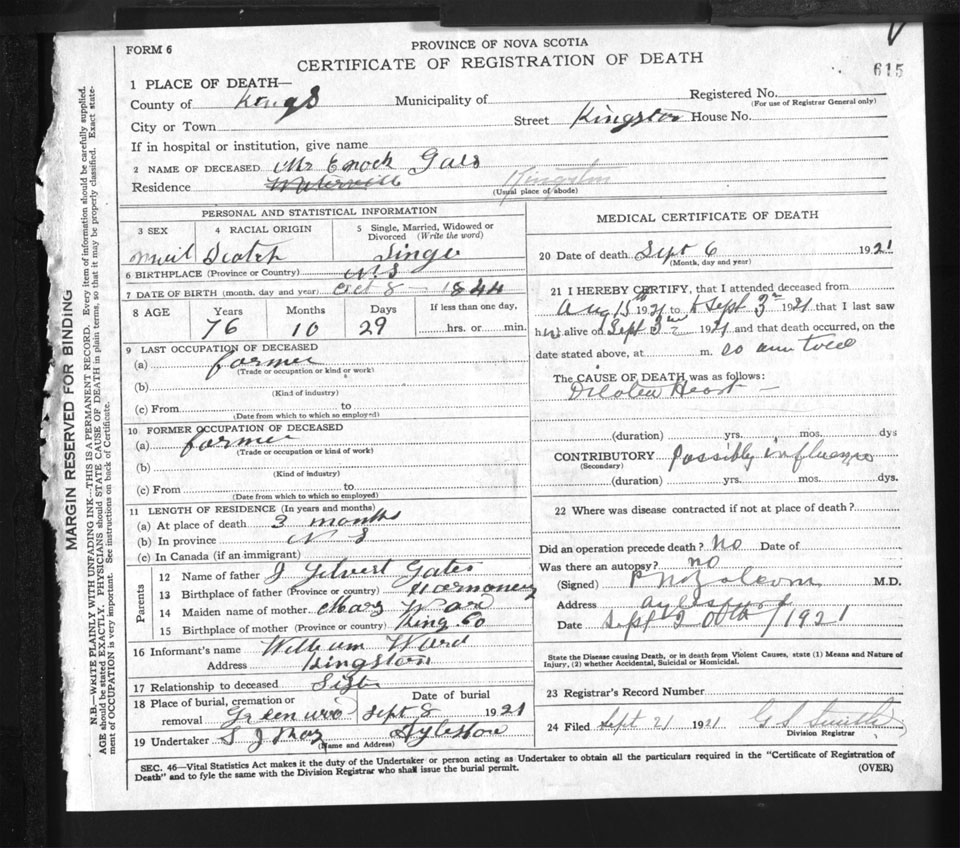 FORM 6
PROVINCE OF NOVA SCOTIA
CERTIFICATE OF REGISTRATION OF DEATH
615
1 PLACE OF DEATH—
County of Kings Municipality of Registered No.
(For use of Registrar General only)
City or Town Street Kingston House No.
If in hospital or institution, give name
2 NAME OF DECEASED Mr Enoch
Residence Kingston
(Usual place of abode)
PERSONAL AND STATISTICAL INFORMATION
3 SEX 4 RACIAL ORIGIN 5 Single, Married, Widowed or Divorced (Write the word)
Scotch
6 BIRTHPLACE (Province or Country) N.S
7 DATE OF BIRTH (month, day and year) Oct 8 – 1844
8 AGE Years Months Days If less than one day,
76 10 29 hrs. or min.
9 LAST OCCUPATION OF DECEASED
(a) farmer
(Trade or occupation or kind or work)
(b)
(Kind of industry)
(c) From to
(Date from which to which so employed)
10 FORMER OCCUPATION OF DECEASED
(a) farmer
(Trade or occupation or kind of work)
(b)
(Kind of industry)
(c) From to
(Date from which to which so employed)
11 LENGTH OF RESIDENCE (In years and months)
(a) At place of death 3 months
(b) In province N S
(c) In Canada (if an immigrant)
Parents
12 Name of father J Gates
13 Birthplace of father (Province or country)
14 Maiden name of mother Mary
15 Birthplace of mother (Province or country) King Co
16 Informant's name William Ward
Address Kingston
17 Relationship to deceased
18 Place of burial, cremation or removal Date of burial
Sept 8 1921
19 Undertaker S J
(Name and Address)
MEDICAL CERTIFICATE OF DEATH
20 Date of death Sept 6 1921
(Month, day and year)
21 I HEREBY CERTIFY, that I attended deceased from
Aug 15th 1921 to Sept 3rd 1921 that I last saw
him alive on Sept 3rd 1921 and that death occurred, on the
date stated above, at m.
The CAUSE OF DEATH was as follows:
Dilated Heart
(duration) yrs. mos. dys
CONTRIBUTORY Possibly influenza
(Secondary)
(duration) yrs. mos. dys.
22 Where was disease contracted if not at place of death?
Did an operation precede death? No Date of
Was there an autopsy? no
(Signed) M.D.
Address Aylesford
Date Sept 20th /1921
State the Disease causing Death, or in death from Violent Causes, state (1) Means and Nature of
Injury, (2) whether Accidental, Suicidal or Homicidal.
23 Registrar's Record Number
24 Filed Sept 21 1921 G S
Division Registrar
SEC. 46—Vital Statistics Act makes it the duty of the Undertaker or person acting as Undertaker to obtain all the particulars required in the "Certificate of Registration of
Death" and to fyle the same with the Division Registrar who shall issue the burial permit.
(OVER)
MARGIN RESERVED FOR BINDING
N.B.—WRITE PLAINLY WITH UNFADING INK—THIS IS A PERMANENT RECORD. Every item of information should be carefully supplied.
AGE should be stated EXACTLY. PHYSICIANS should STATE CAUSE OF DEATH in plain terms, so that it may be properly classified. Exact statement
of OCCUPATION is very important. See instructions on back of Certificate.